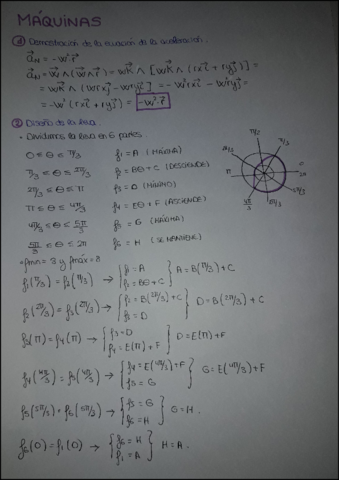 MÁQUINAS
① Demostración de la ecuación de la aceleración.
a⃗N = -w²·r⃗
a⃗N = w⃗ ∧ (w⃗ ∧ r⃗) = wk⃗ ∧ [wk⃗ ∧ (rxi⃗ + ryj⃗)] =
= wk⃗ ∧ (wrxj⃗ - wryi⃗) = -w²rxi⃗ - w²ryj⃗ =
= -w² (rxi⃗ + ryj⃗) = -w²·r⃗
② Diseño de la leva.
• Dividamos la leva en 6 partes.
0 ≤ θ ≤ π/3 f₁ = A (MÁXIMA)
π/3 ≤ θ ≤ 2π/3 f₂ = Bθ + C (DESCIENDE)
2π/3 ≤ θ ≤ π f₃ = D (MÍNIMO)
π ≤ θ ≤ 4π/3 f₄ = Eθ + F (ASCIENDE)
4π/3 ≤ θ ≤ 5π/3 f₅ = G (MÁXIMA)
5π/3 ≤ θ ≤ 2π f₆ = H (SE MANTIENE)
π/2 π/3 2π/3 π 0 4π/3 5π/3
fmin = 3 y fmáx = 8
f₁(π/3) = f₂(π/3) → { f₁ = A A = B(π/3) + C
f₂ = Bθ + C
f₂(2π/3) = f₃(2π/3) → { f₂ = B(2π/3) + C D = B(2π/3) + C
f₃ = D
f₃(π) = f₄(π) → { f₃ = D D = E(π) + F
f₄ = E(π) + F
f₄(4π/3) = f₅(4π/3) → { f₄ = E(4π/3) + F G = E(4π/3) + F
f₅ = G
f₅(5π/3) = f₆(5π/3) → { f₅ = G G = H.
f₆ = H
f₆(0) = f₁(0) → { f₆ = H H = A.
f₁ = A